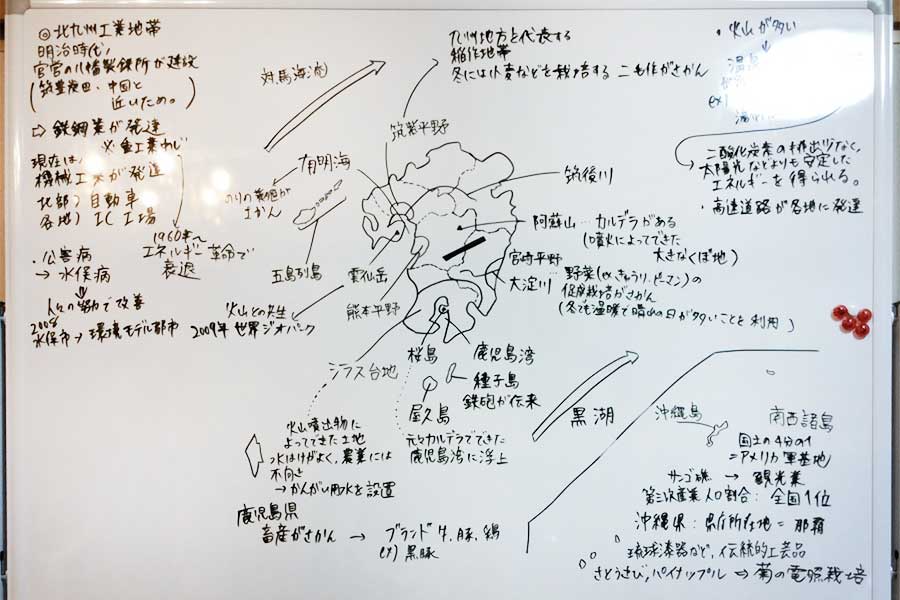 ◎ 北九州工業地帯
明治時代、
官営の八幡製鉄所が建設
(筑豊炭田、中国と
近いため。)
⇨ 鉄鋼業が発達
※重工業
現在は、
機械工業が発達
北部）自動車
各地）IC工場
1960年〜
エネルギー革命で
衰退
・公害病
→ 水俣病
人々の努力で改善
2008
水俣市→環境モデル都市
対馬海流
九州地方を代表する
稲作地帯
冬には小麦などを栽培する 二毛作がさかん
筑紫平野
有明海
のりの養殖が
さかん
五島列島
雲仙岳
火山との共生
2009年 世界ジオパーク
熊本平野
筑後川
阿蘇山…カルデラがある
(噴火によってできた
大きなくぼ地)
宮崎平野
大淀川
野菜(ex.きゅうり、ピーマン)の
促成栽培がさかん
(冬でも温暖で晴れの日が多いことを利用)
・火山が多い
ex)
二酸化炭素の排出少なく、
太陽光などよりも安定した
エネルギーを得られる。
・高速道路が各地に発達
シラス台地
火山噴出物に
よってできた土地
水はけがよく、農業には
不向き
→かんがい用水を設置
桜島
鹿児島湾
種子島
鉄砲が伝来
屋久島
元々カルデラでできた
鹿児島湾に浮上
黒潮
鹿児島県
畜産がさかん → ブランド牛、豚、鶏
ex) 黒豚
沖縄島
南西諸島
国土の4分の1
=アメリカ軍基地
サンゴ礁 → 観光業
第三次産業人口割合：全国1位
沖縄県：県庁所在地＝那覇
琉球漆器など、伝統的工芸品
さとうきび、パイナップル ⇒ 菊の電照栽培